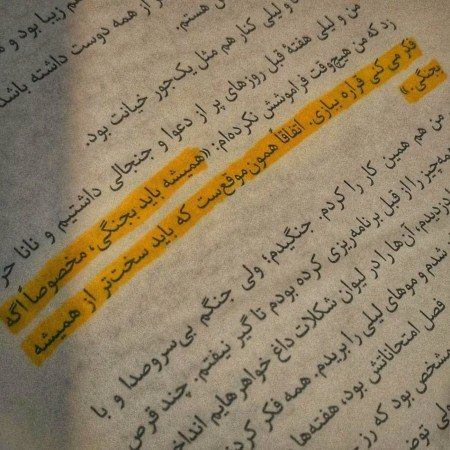 م زیبا بود و
از همه دوست داشته باشد
هستم:
من و لیلی کنار هم مثل یک‌جور خیانت بود.
من و لیلی هفتهٔ قبل روزهای پر از دعوا و جنجالی داشتیم و نانا حر
زد که من هیچ‌وقت فراموشش نکرده‌ام: «همیشه باید بجنگی، مخصوصاً اگه
فکر می‌کنی قراره ببازی. اتفاقاً همون موقع‌ست که باید سخت‌تر از همیشه
بجنگی.»
من هم همین کار را کردم. جنگیدم؛ ولی جنگم بی‌سروصدا و با
مه‌چیز را از قبل برنامه‌ریزی کرده بودم تا گیر نیفتم. چند قرص
دزدیدم؛ آن‌ها را در لیوان شکلات داغ خواهرهایم انداخ
شدم و موهای لیلی را بریدم. همه فکر کرد
فصل امتحاناتش بود، هفته‌ها
مشخص بود که رز
ولی توض